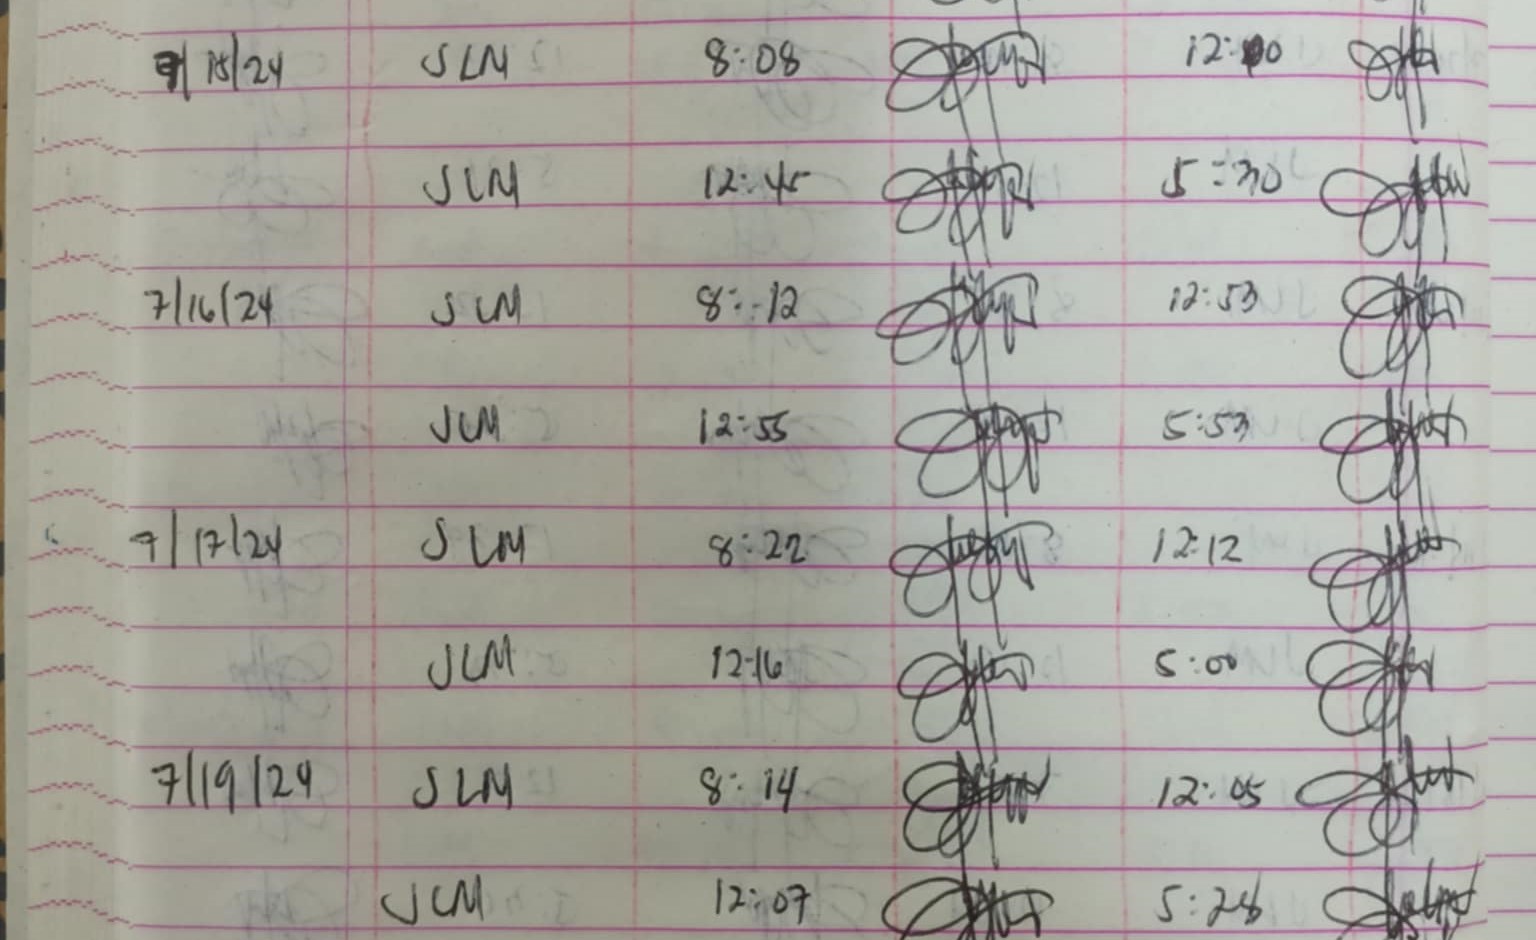 7/15/24 JLM 8:08 12:10
JLM 12:45 5:30
7/16/24 JLM 8:12 12:53
JLM 12:55 5:53
7/17/24 JLM 8:22 12:12
JLM 12:16 5:00
7/19/24 JLM 8:14 12:05
JLM 12:07 5:28